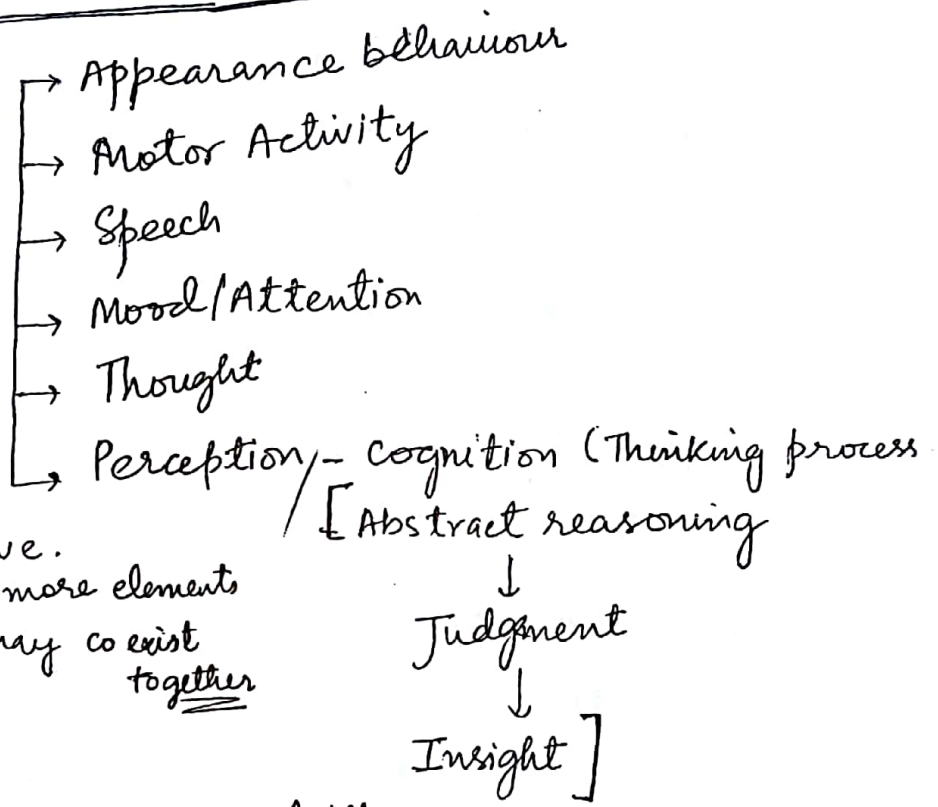 Appearance behaviour
Motor Activity
Speech
Mood/Attention
Thought
Perception/- cognition (Thinking process
[Abstract reasoning
↓
Judgment
↓
Insight]
more elements
co exist
together